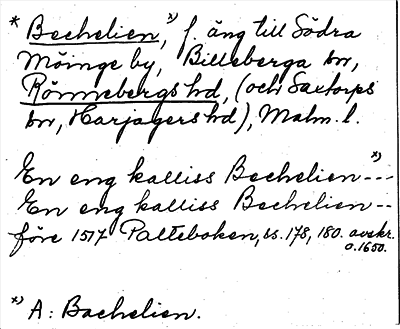 * Bechelien,*) f. äng till Södra
Möinge by, Billeberga sn,
Rönnebergs hd, (och Saxtorps
sn, Harjagers hd), Malm. l.
En eng kalliss Bechelien*) ---
En eng kalliss Bechelien --
före 1517 Palteboken, ss. 178, 180. avskr.
o. 1650.
*) A: Bachelien.